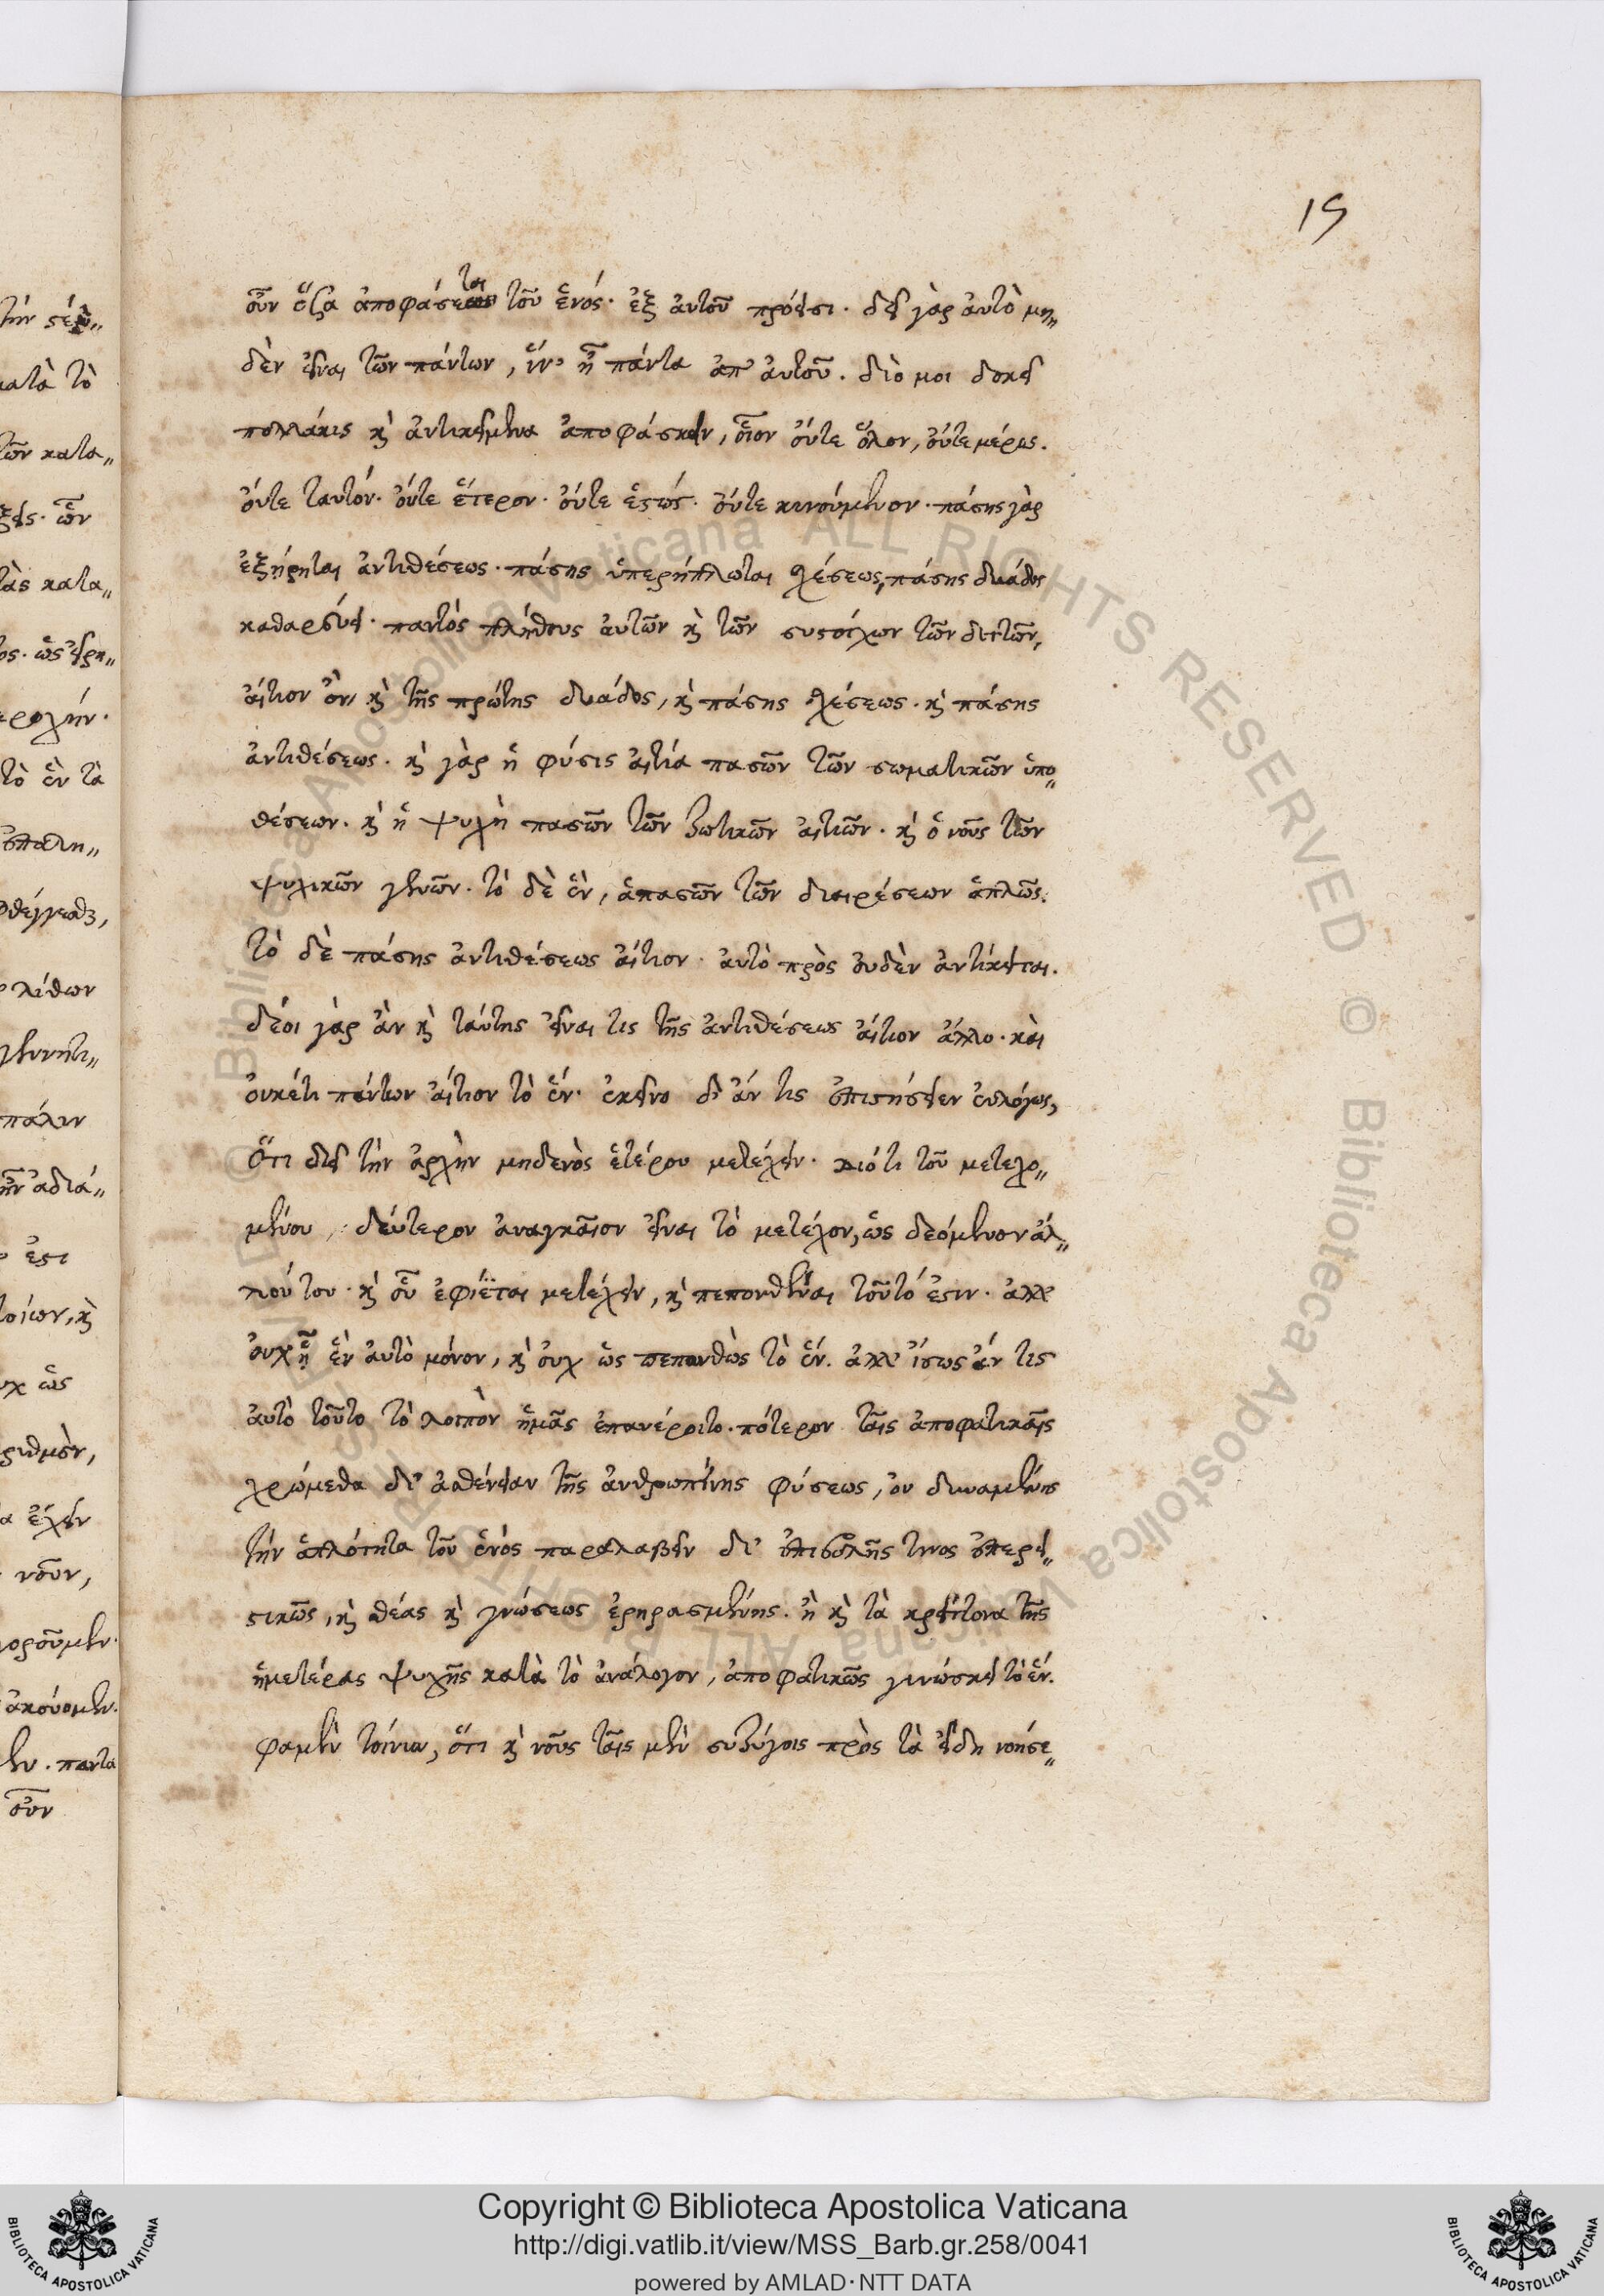 19
οὖν ὅσα ἀποφάσεται τοῦ ἑνός· ἐξ αὐτοῦ πρόεισι. δεῖ γὰρ αὐτὸ μη„
δὲν εἶναι τῶν πάντων, ἵν' ᾖ πάντα ἀπ' αὐτοῦ. διό μοι δοκεῖ
πολλάκις καὶ ἀντικείμενα ἀποφάσκειν, οἷον οὔτε ὅλον, οὔτε μέρος.
οὔτε ταυτόν. οὔτε ἕτερον. οὔτε ἑστώς. οὔτε κινούμενον. πάσης γὰρ
ἐξῄρηται ἀντιθέσεως. πάσης ὑπερήπλωται σχέσεως, πάσης δυάδος
καθαρεύει. παντός πλήθους αὐτῶν καὶ τῶν συστοίχων τῶν διττῶν,
αἴτιον ὂν, καὶ τῆς πρώτης δυάδος, καὶ πάσης σχέσεως. καὶ πάσης
ἀντιθέσεως. καὶ γὰρ ἡ φύσις αἰτία πασῶν τῶν σωματικῶν ὑπο„
θέσεων. καὶ ἡ ψυχὴ πασῶν τῶν ζωτικῶν αἰτιῶν. καὶ ὁ νοῦς τῶν
ψυχικῶν γενῶν. τὸ δὲ ἓν, ἁπασῶν τῶν διαιρέσεων ἁπλῶς.
τὸ δὲ πάσης ἀντιθέσεως αἴτιον. αὐτὸ πρὸς οὐδὲν ἀντίκειται.
δέοι γὰρ ἂν καὶ ταύτης εἶναι τις τῆς ἀντιθέσεως αἴτιον ἄλλο. καὶ
οὐκέτι πάντων αἴτιον τὸ ἕν. ἐκεῖνο δ' ἄν τις ἐπιστήσειεν εὐλόγως,
ὅτι δεῖ τὴν ἀρχὴν μηδενὸς ἑτέρου μετέχειν. διότι τοῦ μετεχο„
μένου, δεύτερον ἀναγκαῖον εἶναι τὸ μετέχον, ὡς δεόμενον ἀλ„
λου του. καὶ οὗ ἐφίεται μετέχειν, καὶ πεπονθέναι τοῦτό ἐστιν. ἀλλ'
οὐχ ᾗ ἓν αὐτὸ μόνον, καὶ οὐχ ὡς πεπονθὼς τὸ ἕν. ἀλλ' ἴσως ἄν τις
αὐτὸ τοῦτο τὸ λοιπὸν ἡμᾶς ἐπανέροιτο. πότερον ταῖς ἀποφατικαῖς
χρώμεθα δι' ἀσθένειαν τῆς ἀνθρωπίνης φύσεως, οὐ δυναμένης
τὴν ἁπλότητα τοῦ ἑνός παραλαβεῖν δι' ἐπιβολῆς τινος ἐπερει„
στικῶς, καὶ θέας καὶ γνώσεως ἐρηρασμένης. ἢ καὶ τὰ κρείττονα τῆς
ἡμετέρας ψυχῆς κατὰ τὸ ἀνάλογον, ἀποφατικῶς γινώσκει τὸ ἕν.
φαμὲν τοίνυν, ὅτι καὶ νοῦς ταῖς μὲν συζύγοις πρὸς τὰ εἴδη νοήσε„
Copyright © Biblioteca Apostolica Vaticana
http://digi.vatlib.it/view/MSS_Barb.gr.258/0041
powered by AMLAD·NTT DATA